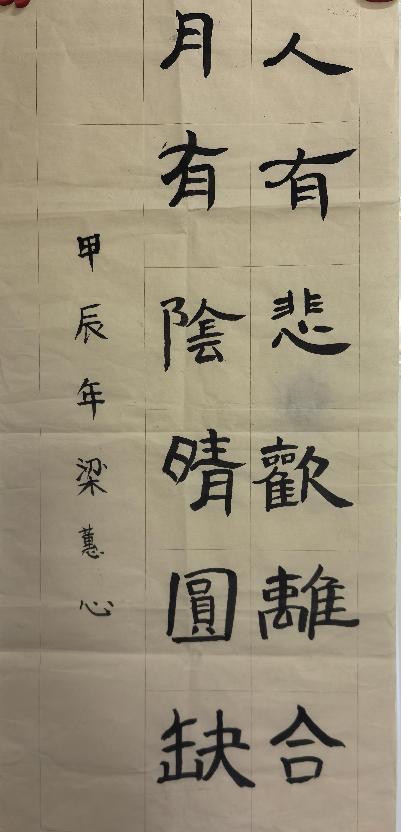 人有悲歡離合
月有陰晴圓缺
甲辰年梁蕙心